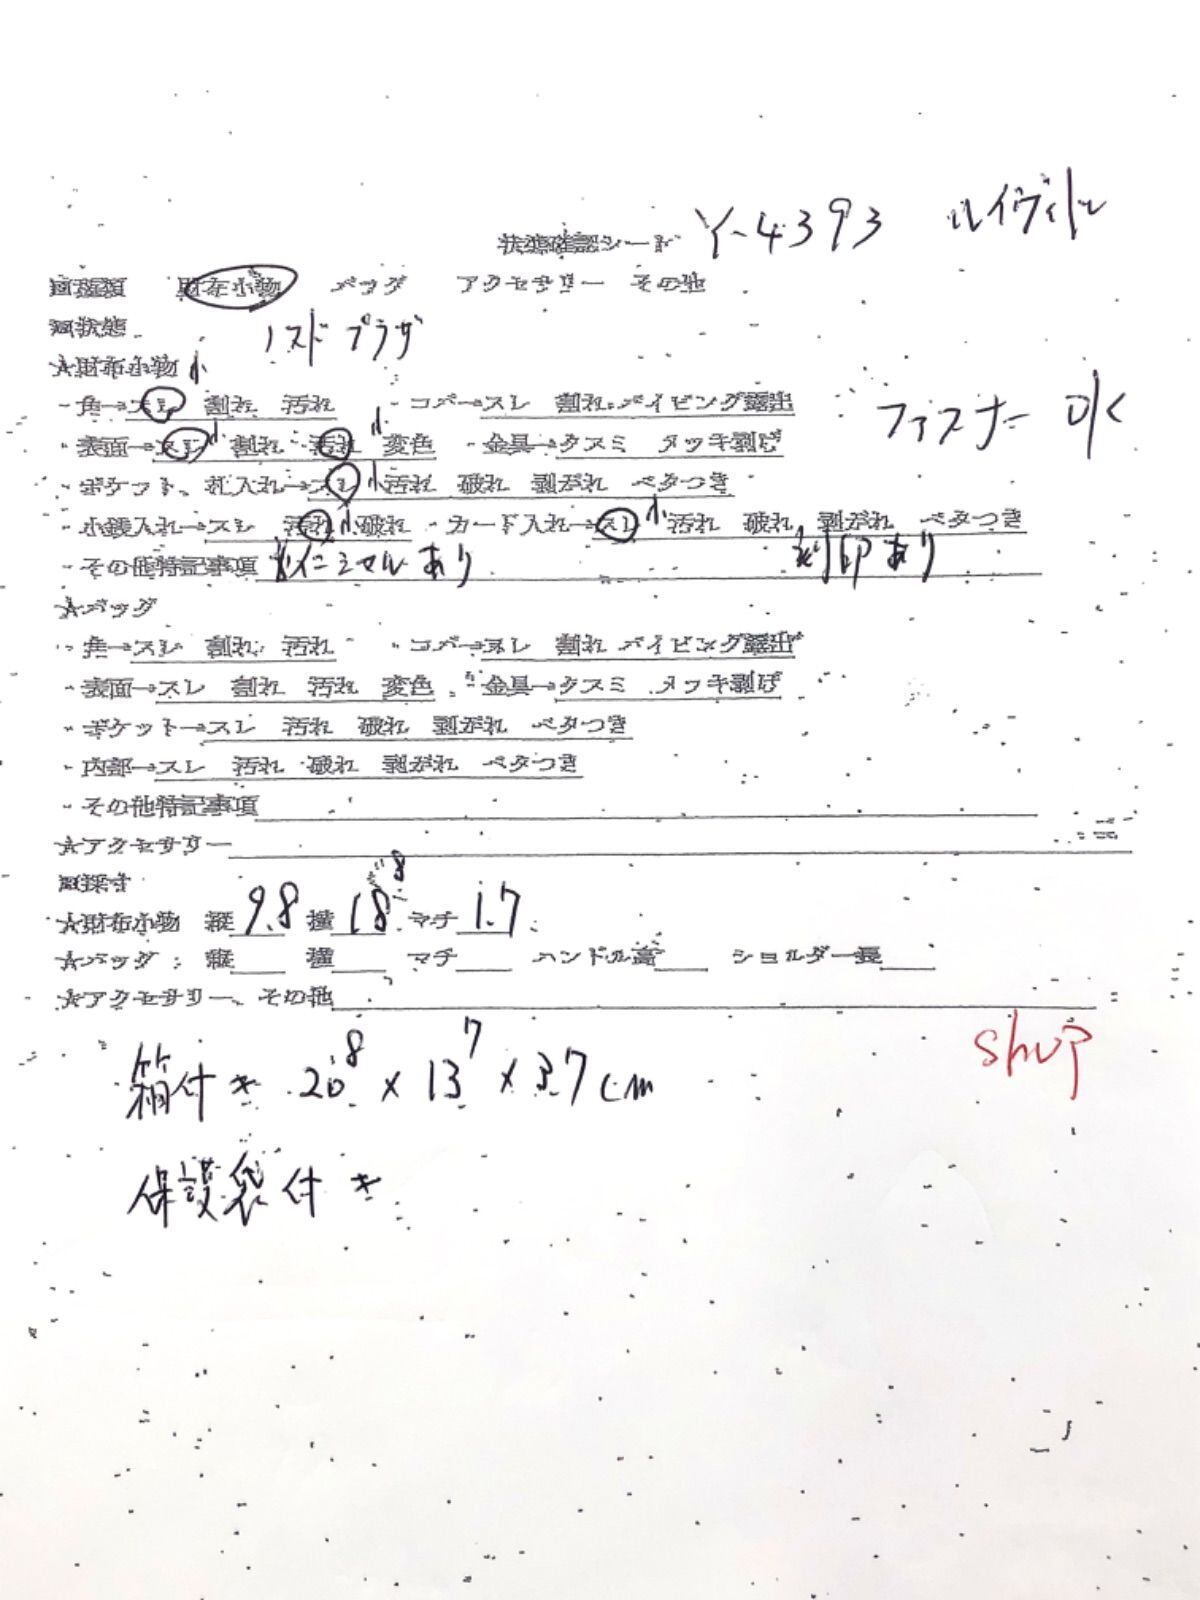 状態確認シート Y-4393 ルイヴィトン
回種類 財布小物 バッグ アクセサリー その他
回状態 ノスドプラザ
☆財布小物 小
・角→スレ 割れ 汚れ ・コバ→スレ 割れ パイピング露出
ファスナー OK
・表面→スレ 小 割れ 汚れ 小 変色 ・金具→クスミ メッキ剥げ
・ポケット、札入れ→スレ 小 汚れ 破れ 剥がれ ベタつき
・小銭入れ→スレ 汚れ 小 破れ ・カード入れ→スレ 小 汚れ 破れ 剥がれ ベタつき
・その他特記事項 イニシャルあり 刻印あり
☆バッグ
・角→スレ 割れ 汚れ ・コバ→スレ 割れ パイピング露出
・表面→スレ 割れ 汚れ 変色 ・金具→クスミ メッキ剥げ
・ポケット→スレ 汚れ 破れ 剥がれ ベタつき
・内部→スレ 汚れ 破れ 剥がれ ベタつき
・その他特記事項
☆アクセサリー
回採寸
☆財布小物 縦 9.8 横 18.8 マチ 1.7
☆バッグ 縦 横 マチ ハンドル高 ショルダー長
☆アクセサリー、その他
shop
箱付き 20.8 × 13.7 × 3.7cm
保護袋付き